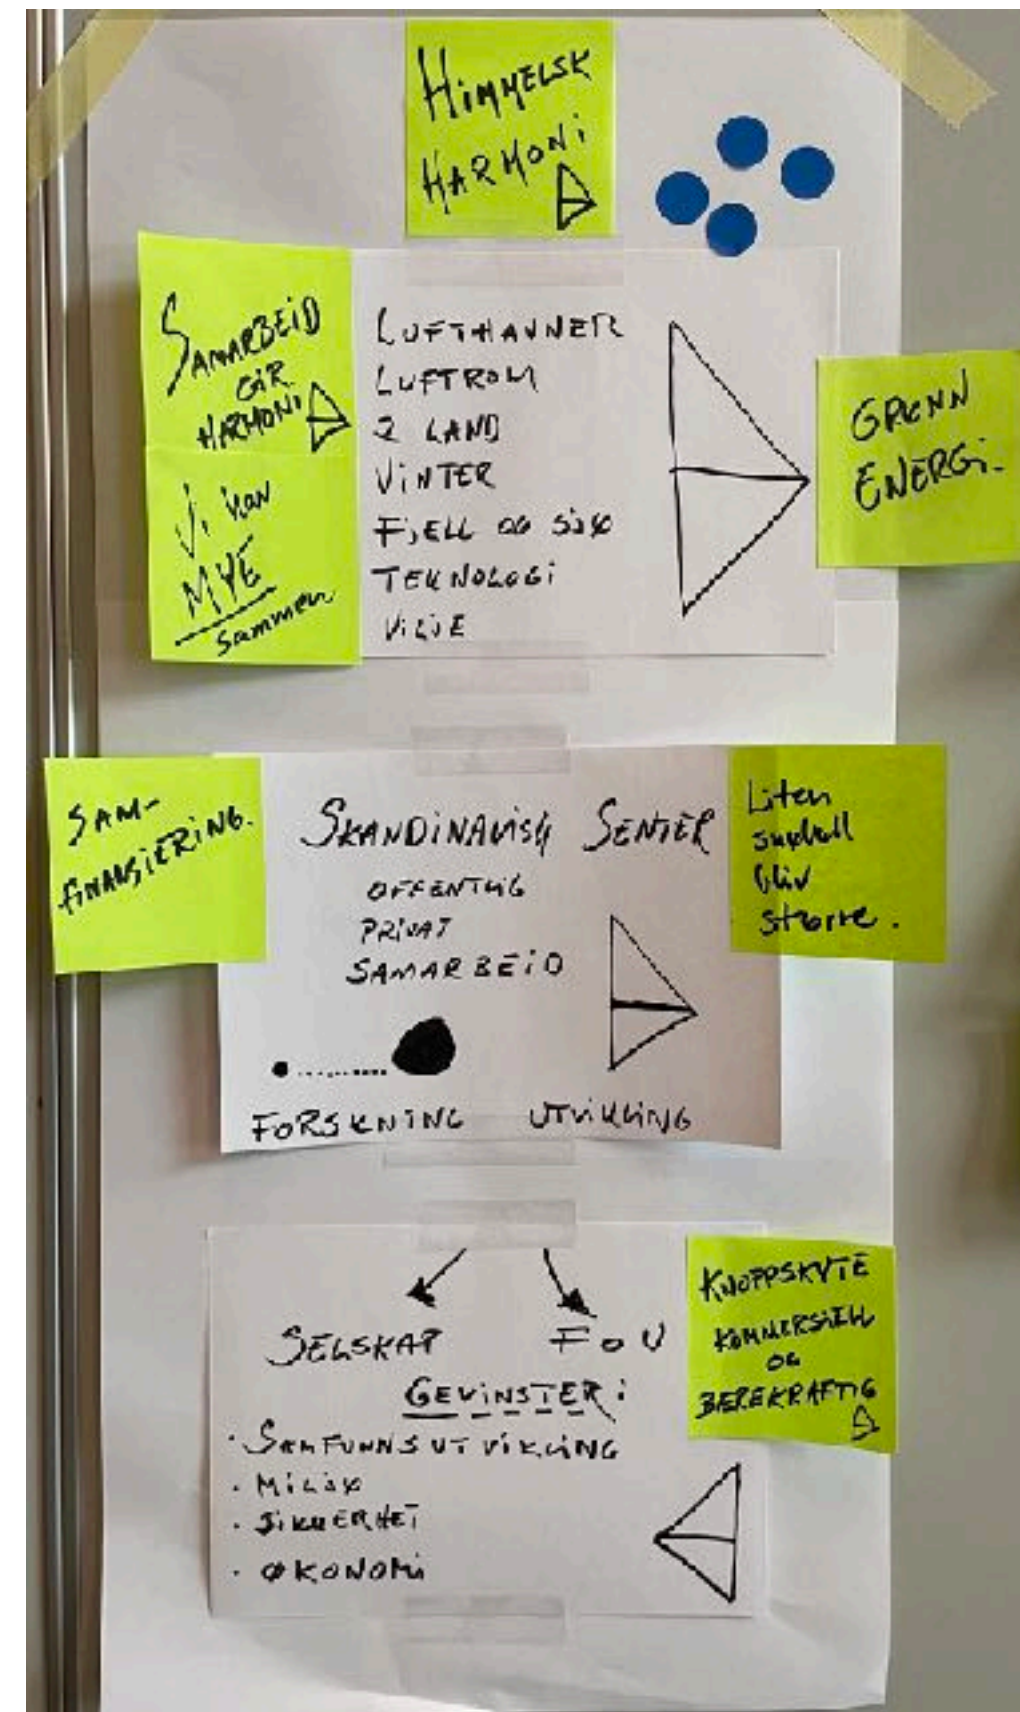 HIMMELSK
HARMONI
SAMARBEID
GIR
HARMONI
Vi kan
MYE
sammen
LUFTHAVNER
LUFTROM
2 LAND
VINTER
FJELL OG SJØ
TEKNOLOGI
VILJE
GRØNN
ENERGI.
SAM-
FINANSIERING.
SKANDINAVISK SENTER
OFFENTLIG
PRIVAT
SAMARBEID
FORSKNING UTVIKLING
Liten
snøball
bliv
større.
SELSKAP FoU
GEVINSTER:
· SAMFUNNSUTVIKLING
· MILJØ
· SIKKERHET
· ØKONOMI
KNOPPSKYTE
KOMMERSIELL
OG
BÆREKRAFTIG